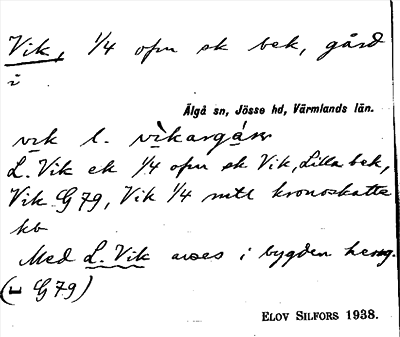 Vik, 1/4 ofm sk bek, gård
i
Älgå sn, Jösse hd, Värmlands län.
vik l. vikargár
L. Vik ek 1/4 ofm sk Vik, Lilla bek,
Vik G 79, Vik 1/4 mtl kronoskatte
kb
Med L. Vik avses i bygden hemg.
(⊔ G 79)
ELOV SILFORS 1938.